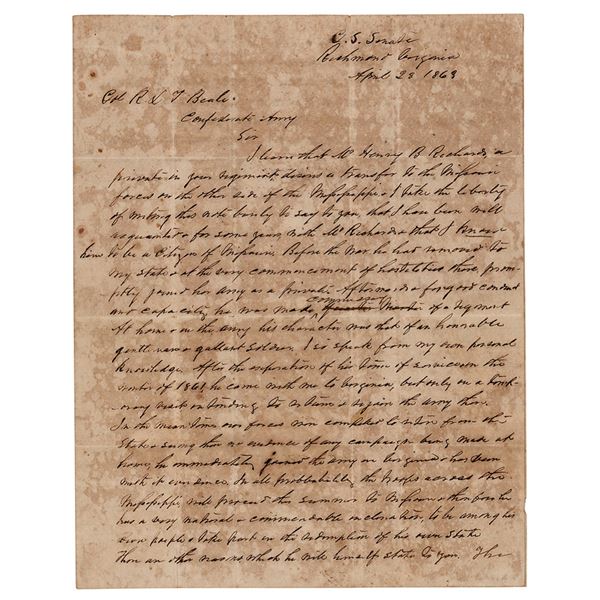 C. S. Senate
Richmond Virginia
April 28 1863
Col R L T Beale.
Confederate Army
Sir
I learn that Mr Henry B Richards, a
private in your regiment, desires a transfer to the Missouri
forces on the other side of the Mississippi & I take the liberty
of writing this note barely to say to you, that I have been well
acquainted for some years with Mr Richards & that I know
him to be a citizen of Missouri. Before the war he had removed to
my state & at the very commencement of hostilities there, prom-
ptly joined her army as a private. Afterwards for good conduct
and capacity, he was made commissary of a regiment
At home & in the army his character was that of an honorable
gentleman & gallant soldier. I so speak from my own personal
knowledge. After the expiration of his term of service in the
winter of 1861 he came with me to Virginia, but only on a temp-
orary visit intending to return & rejoin the army there.
In the mean time our forces were compelled to retire from the
State & seeing then no evidence of any campaign being made at
home, he immediately joined the army in Virginia & has been
with it ever since. In all probability the troops across the
Mississippi will proceed this summer to Missouri & therefore he
has a very natural & commendable inclination, to be among his
own people & take part in the redemption of his own State
There are other reasons, which he will himself state to you. The